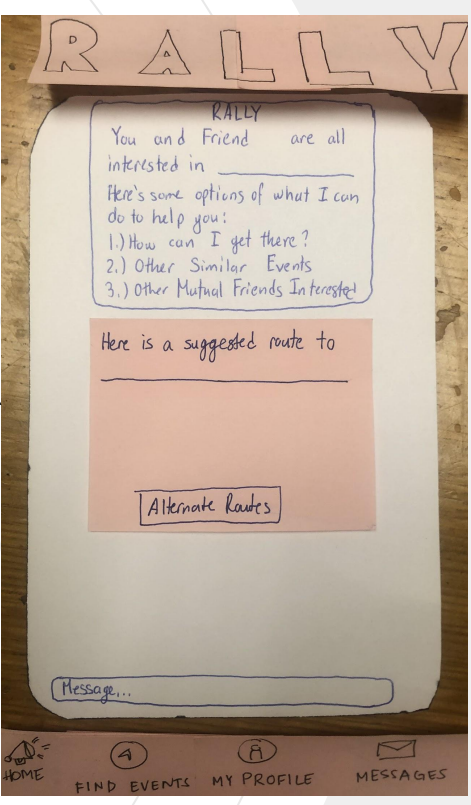 RALLY
RALLY
You and Friend are all
interested in
Here's some options of what I can
do to help you:
1.) How can I get there?
2.) Other Similar Events
3.) Other Mutual Friends Interested
Here is a suggested route to
Alternate Routes
Message...
HOME
FIND EVENTS
MY PROFILE
MESSAGES